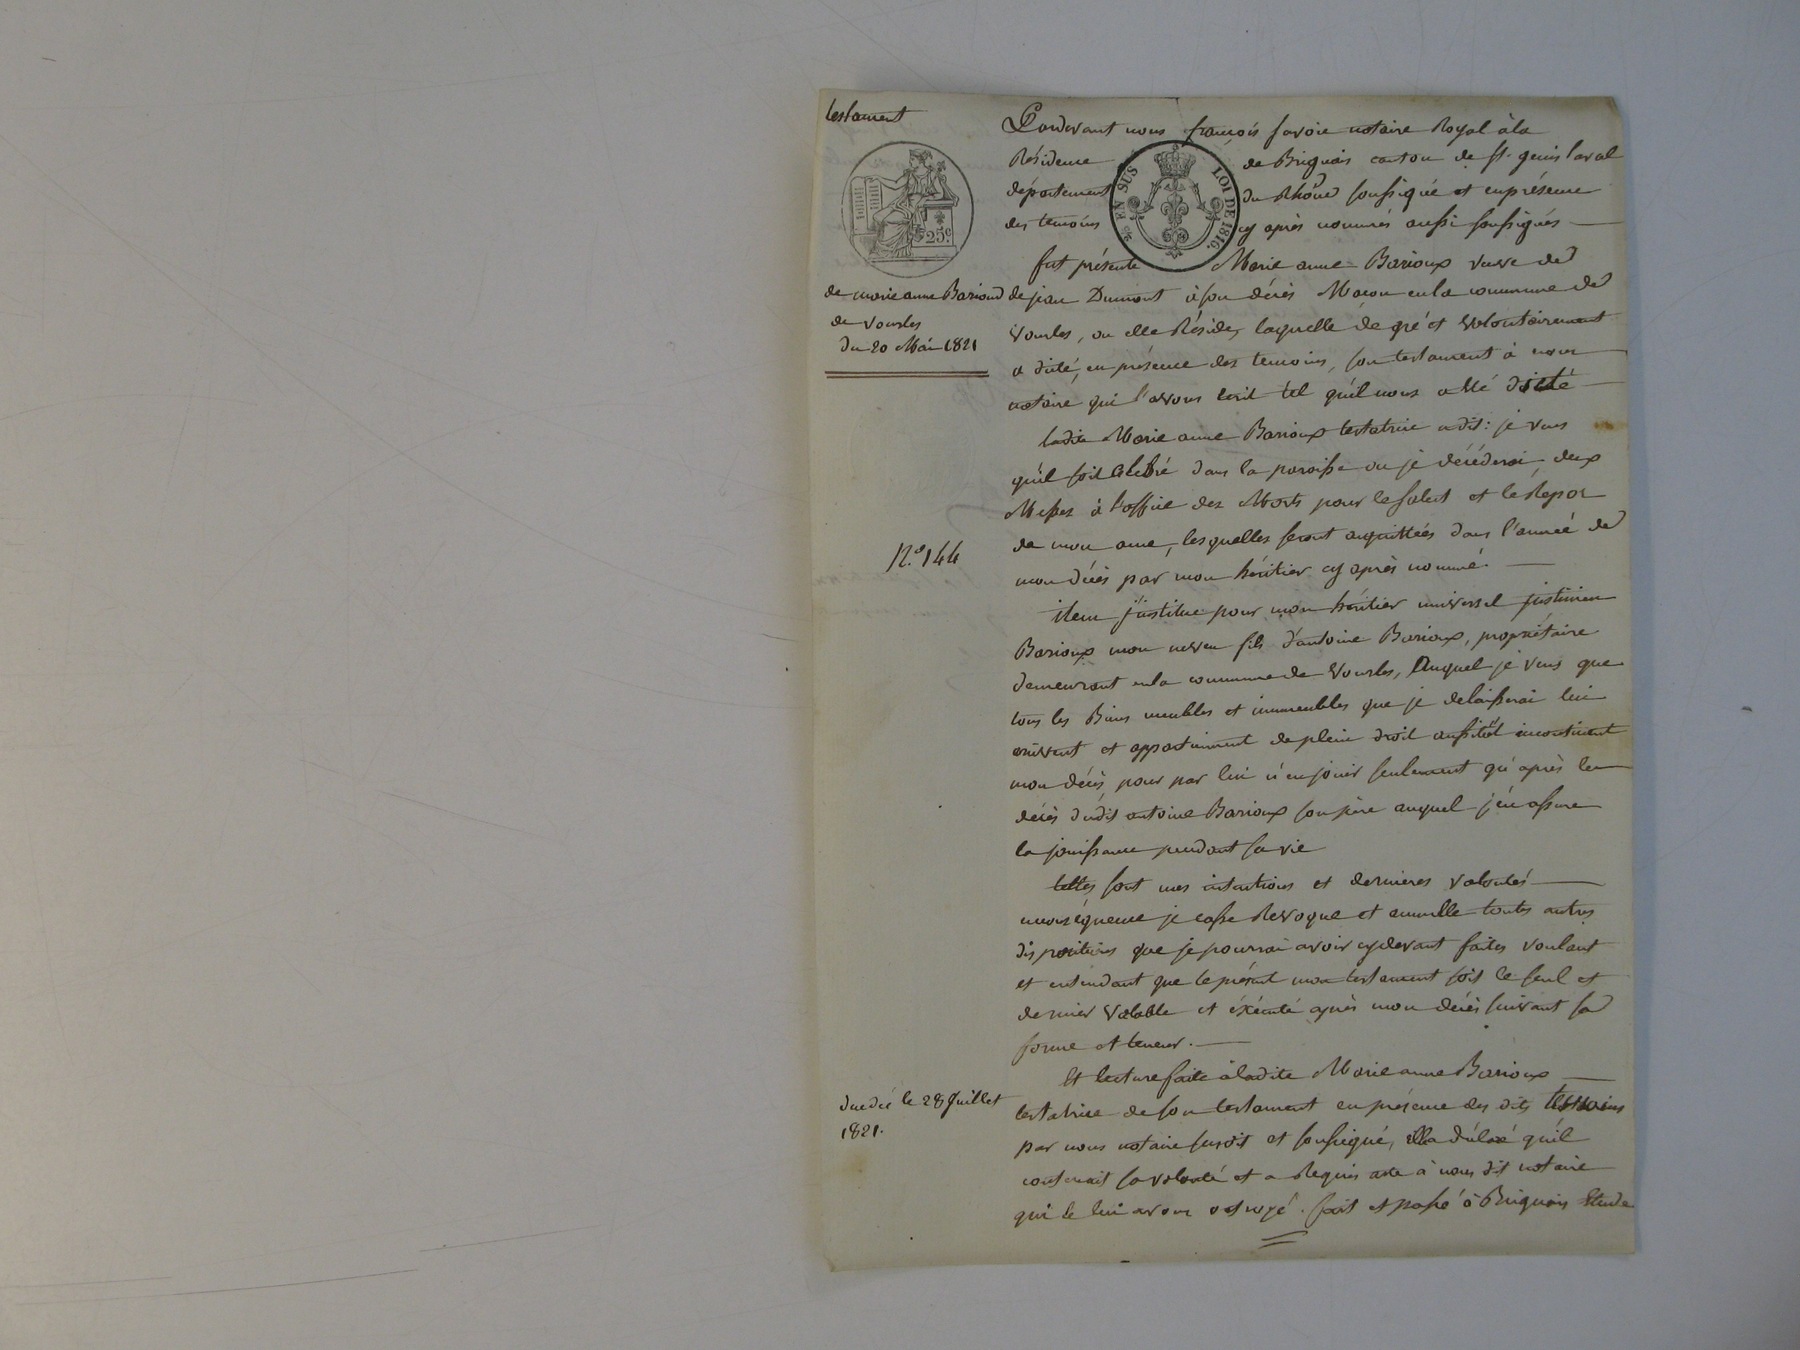 testament
25c.
de marie anne Barioud
de Vourles
du 20 Mai 1821
N.o 144
décédée le 28 Juillet
1821.
Pardevant nous françois favoie notaire Royal à la
Résidence de Briguais canton de st. genis laval
département du Rhône soussigné et en présence
des temoins cy après nommés aussi soussignés
EN SUS LOI DE 1816.
fut présente Marie anne Barioux veuve de
de jean Dumont à son décès Maçon en la commune de
Vourles, ou elle Réside, laquelle de gré et volontairement
a dicté, en présence des temoins, son testament à nous
notaire qui l'avons écrit tel qu'il nous a été dicté
ladite Marie anne Barioux testatrice a dit: je veus
qu'il soit célébré dans la paroisse ou je décéderai, deux
Messes à l'office des Morts pour le salut et le Repos
de mon ame, lesquelles seront acquittées dans l'année de
mon décès par mon héritier cy après nommé.
item j'institue pour mon héritier universel justinien
Barioux mon neveu fils d'antoine Barioux, propriétaire
demeurant en la commune de Vourles, Auquel je veus que
tous les Biens meubles et immeubles que je delaisserai lui
arrivent et appartiennent de plein droit aussitôt incontinent
mon décès, pour par lui n'en jouir seulement qu'après le
décès dudit antoine Barioux son père auquel j'en assure
la jouissance pendant sa vie
telles sont mes intentions et dernieres volontés
en conséquence je casse Revoque et annulle toutes autres
dispositions que je pourrai avoir cydevant faites voulant
et entendant que le présent mon testament soit le seul et
dernier valable et éxécuté après mon décès suivant sa
forme et teneur.
Et lecture faite à ladite Marie anne Barioux
testatrice de son testament en présence des dits temoins
par nous notaire susdit et soussigné, ella déclaré qu'il
contenait sa volonté et a Requis acte à nous dit notaire
qui le lui avons octroyé. fait et passé à Briguais Etude